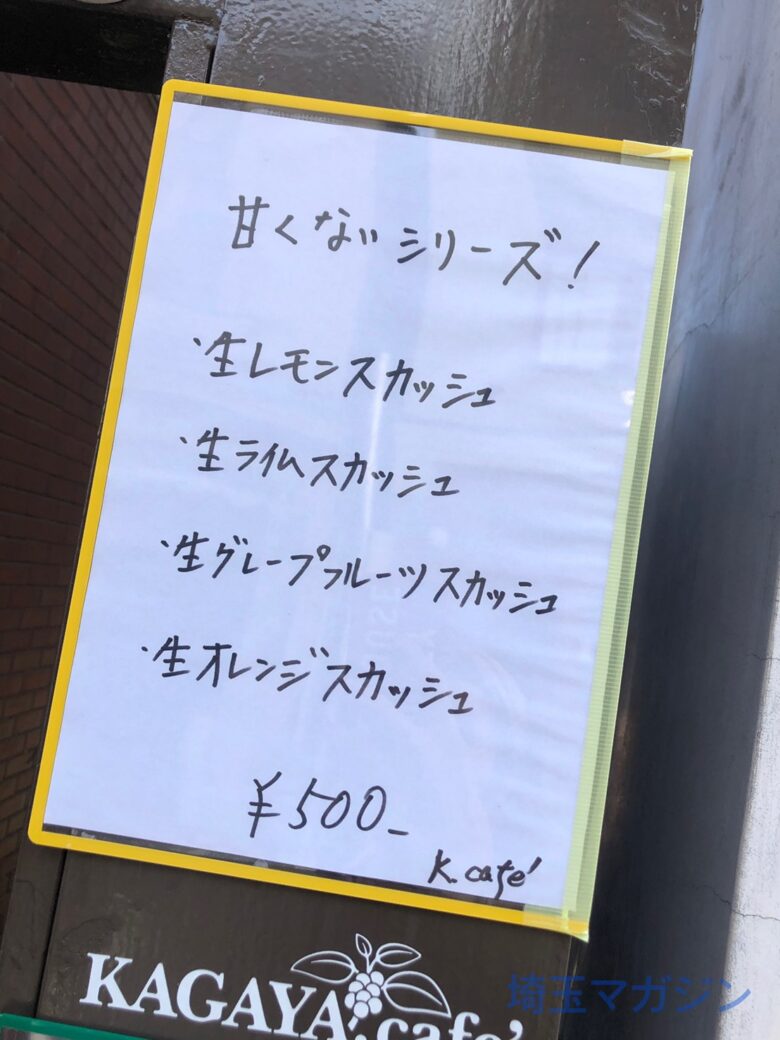 甘くないシリーズ！
・生レモンスカッシュ
・生ライムスカッシュ
・生グレープフルーツスカッシュ
・生オレンジスカッシュ
¥500-
K.café
KAGAYA.café
埼玉マガジン